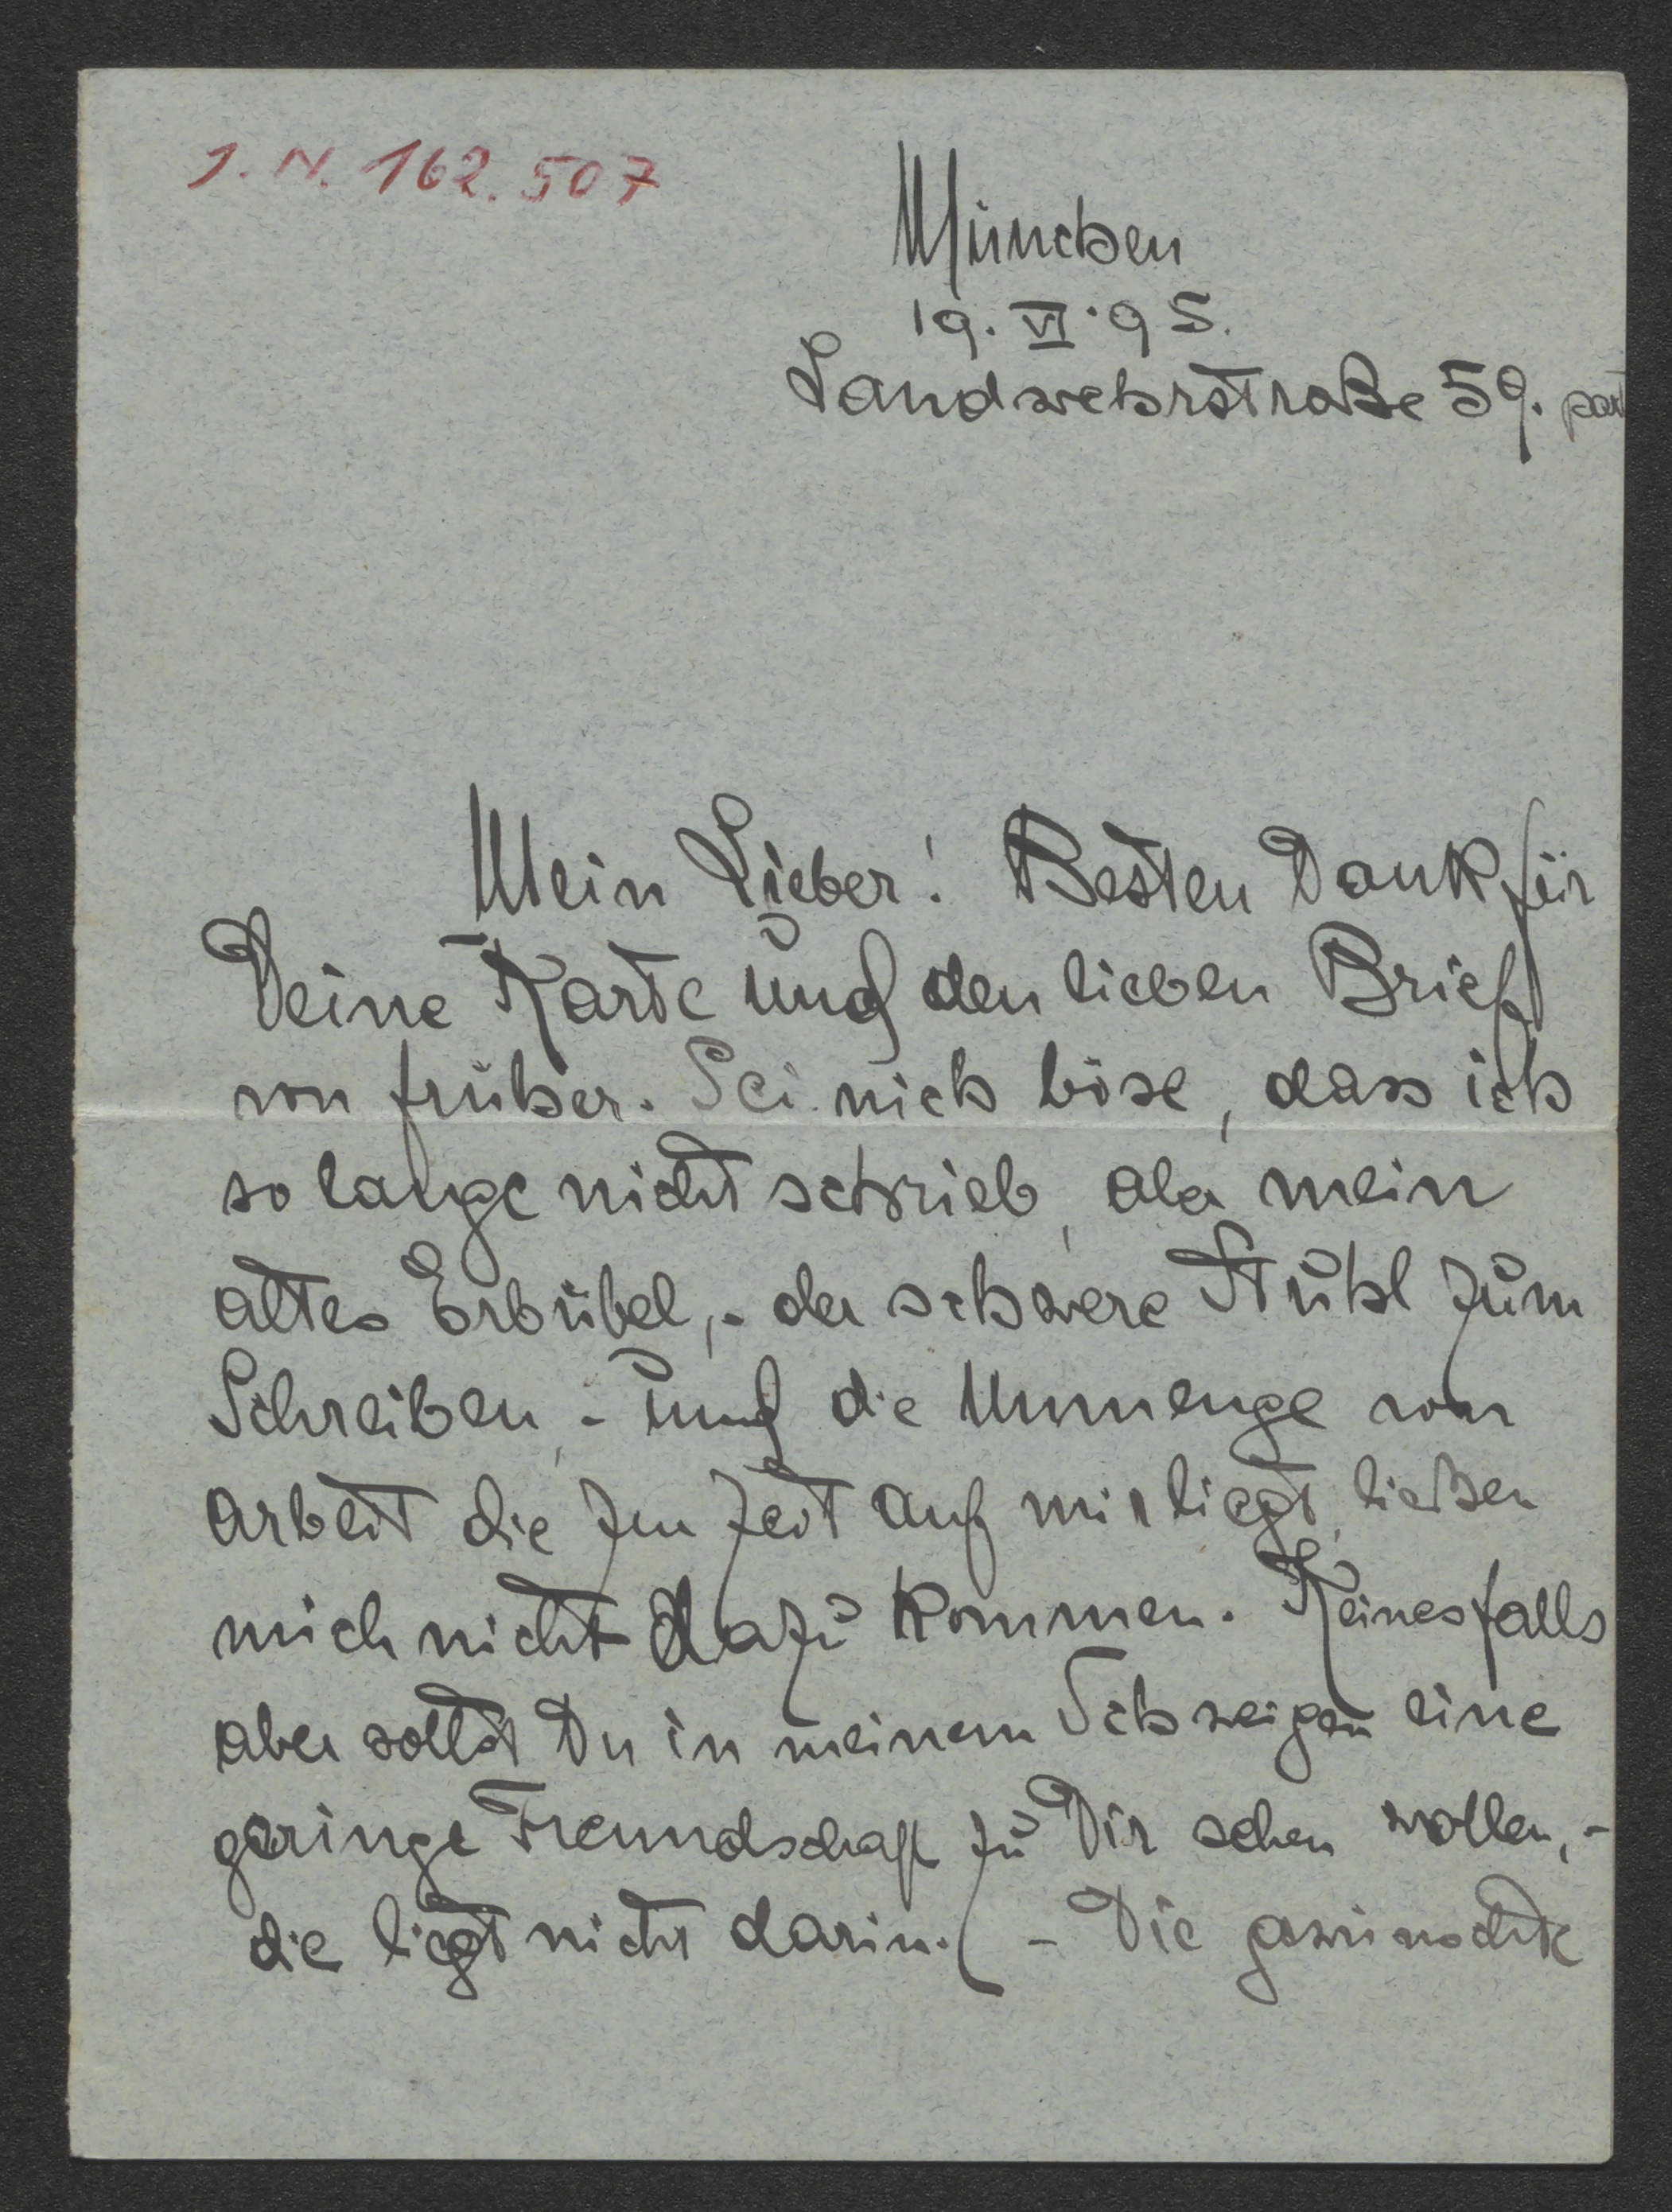 J. N. 162.507
München
19. VI. 95.
Landwehrstraße 59. part
Mein Lieber! Besten Dank für
Deine Karte und den lieben Brief
von früher. Sei nich böse, dass ich
so lange nicht schrieb, aber mein
altes Erbübel, - der schwere Stuhl zum
Schreiben, - und die Unmenge von
Arbeit die zur Zeit auf mir liegt, ließen
mich nicht dazu kommen. Keinesfalls
aber sollst Du in meinem Schweigen eine
geringe Freundschaft zu Dir sehen wollen, -
die liegt nicht darin. - Die gewünschte